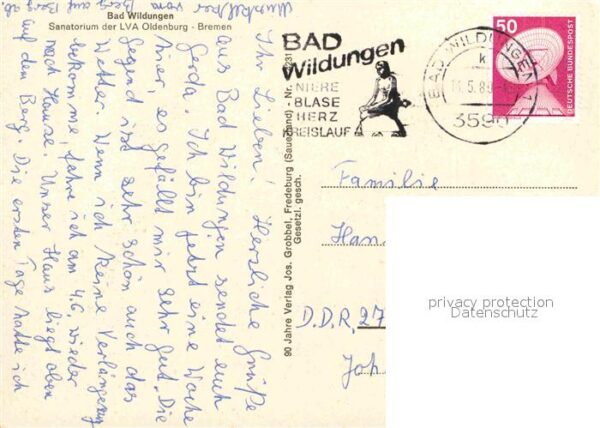 Bad Wildungen
Sanatorium der LVA Oldenburg - Bremen
Ihr Lieben! Herzliche Grüße
aus Bad Wildungen sendet euch
Gerda. Ich bin jetzt eine Woche
hier, es gefällt mir sehr gut. Die
Gegend ist sehr schön auch das
Wetter. Wenn ich keine Verlängerung
bekomme, fahre ich am 4.6. wieder
nach Hause. Unser Haus liegt oben
auf den Berg. Die ersten Tage hatte ich
Muskelkater vom
Berg auf Berg ab.
90 Jahre Verlag Jos. Grobbel, Fredeburg (Sauerland) - Nr.
Gesetzl. gesch.
BAD
Wildungen
NIERE
BLASE
HERZ
KREISLAUF
BAD WILDUNGEN 1
k
.5.80
3590
50
DEUTSCHE BUNDESPOST
Familie
Han
D.D.R. 27
Joh
privacy protection
Datenschutz